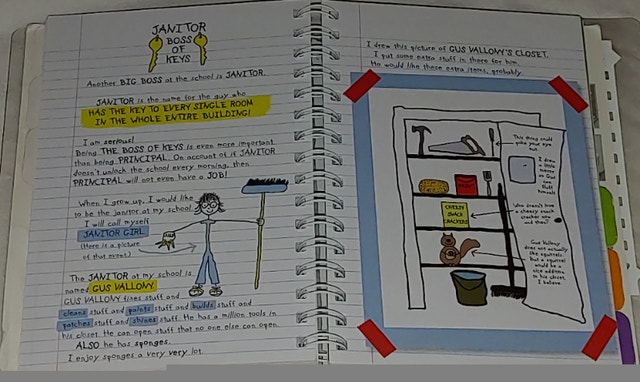 JANITOR
BOSS
OF
KEYS
Another BIG BOSS at the school is JANITOR.
JANITOR is the name for the guy who
HAS THE KEY TO EVERY SINGLE ROOM
IN THE WHOLE ENTIRE BUILDING!
I am serious!
Being THE BOSS OF KEYS is even more important
than being PRINCIPAL. On account of if JANITOR
doesn't unlock the school every morning, then
PRINCIPAL will not even have a JOB!
When I grow up, I would like
to be the janitor at my school.
I will call myself
JANITOR GIRL.
(Here is a picture
of that event.)
The JANITOR at my school is
named GUS VALLONY.
GUS VALLONY fixes stuff and
cleans stuff and paints stuff and builds stuff and
patches stuff and shines stuff. He has a million tools in
his closet. He can open stuff that no one else can open.
ALSO he has sponges.
I enjoy sponges a very very lot.
I drew this picture of GUS VALLONY'S CLOSET.
I put some extra stuff in there for him.
He would like these extra items, probably.
This thing could
poke your eye
out
I drew
a little
mirror
so Gus
can
fluff
himself
CHEESY
SNACK
CRACKERS
Who doesn't love
a cheesy snack
cracker now
and then?
Gus Vallony
does not actually
like squirrels
but a squirrel
would be a
nice addition
to his closet,
I believe